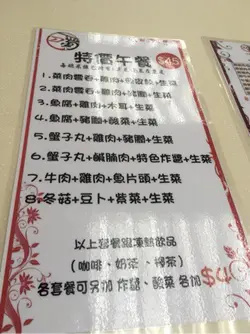 特價午餐 $45
1.菜肉雲吞+雞肉+魚皮餃+生菜
2.菜肉雲吞+雞肉+豬膶+生菜
3.魚腐+雞肉+木耳+生菜
4.魚腐+豬膶+酸菜+生菜
5.蟹子丸+雞肉+豬膶+生菜
6.蟹子丸+鹹腩肉+特色炸醬+生菜
7.牛肉+雞肉+魚片頭+生菜
8.冬菇+豆卜+紫菜+生菜
以上套餐跟凍熱飲品
(咖啡、奶茶、檸茶)
各套餐可另加 炸醬、酸菜 各加